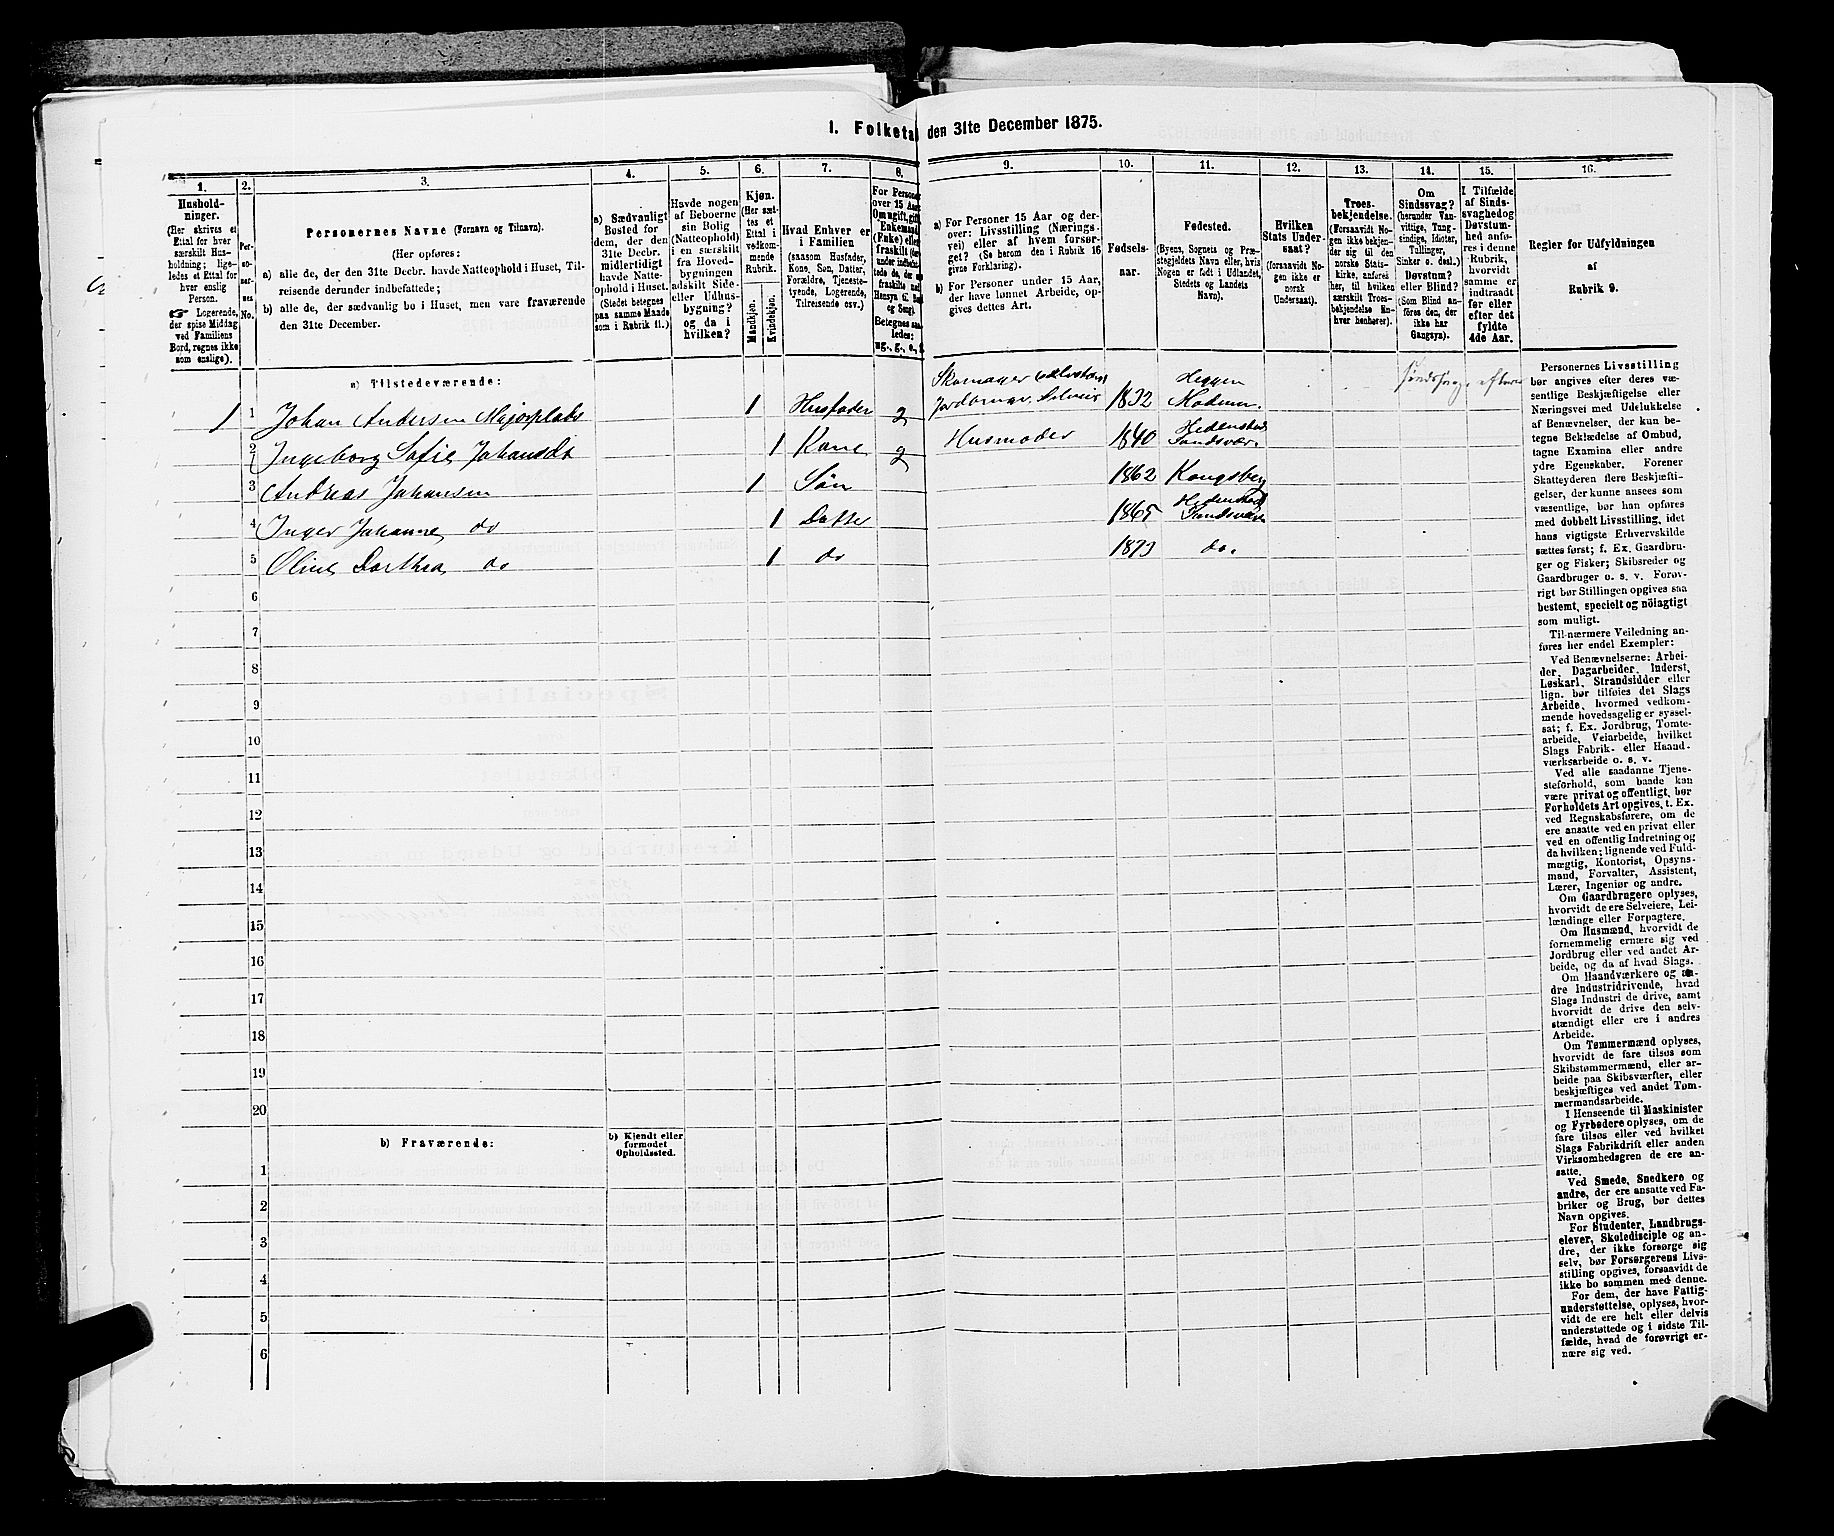 I. Folketal den 31te December 1875.
1.
2.
3.
4.
5.
6.
7.
8.
9.
10.
11.
12.
13.
14.
15.
16.
Hushold-
ninger.
(Her skrives et
Ettal for hver
særskilt Hus-
holdning; lige-
ledes et Ettal for
hver enslig
Person.
☞ Logerende,
der spise Middag
ved Familiens
Bord, regnes ikke
som enslige).
Per-
so-
ner-
nes
No.
Personernes Navne (Fornavn og Tilnavn).
(Her opføres:
a) alle de, der den 31te Decbr. havde Natteophold i Huset, Til-
reisende derunder indbefattede;
b) alle de, der sædvanlig bo i Huset, men vare fraværende
den 31te December.
a) Sædvanligt
Bosted for
dem, der den
31te Decbr.
midlertidigt
havde Natte-
ophold i Huset.
(Stedet betegnes
paa samme Maade
som i Rubrik 11.)
Havde nogen
af Beboerne
sin Bolig
(Natteophold)
i en særskilt
fra Hoved-
bygningen
adskilt Side-
eller Udhus-
bygning?
og da i
hvilken?
Kjøn.
(Her sæt-
tes et
Ettal i
vedkom-
mende
Rubrik.
Mandkjøn.
Kvindekjøn.
Hvad Enhver er
i Familien
(saasom Husfader,
Kone, Søn, Datter,
Forældre, Tjeneste-
tyende, Logerende,
Tilreisende osv.)
For Personer
over 15 Aar:
Om ugift, gift,
Enkemand
(Enke) eller
fraskilt
Betegnes saa-
ledes:
ug., g., e., f.
a) For Personer 15 Aar og der-
over: Livsstilling (Nærings-
vei) eller af hvem forsør-
get? (Se herom den i Rubrik 16
givne Forklaring).
b) For Personer under 15 Aar,
der have lønnet Arbeide, op-
gives dettes Art.
Fødsels-
aar.
Fødested.
(Byens, Sognets og Præ-
stegjeldets Navn eller, hvis
Nogen er født i Udlandet,
Stedets og Landets
Navn).
Hvilken
Stats Under-
saat?
(forsaavidt No-
gen ikke er
norsk
Undersaat).
Troes-
bekjendelse.
(Forsaavidt No-
gen ikke bekjen-
der sig til den
norske Stats-
kirke, anføres
her, til hvilken
særskilt Troes-
bekjendelse En-
hver henhører).
Om
Sindssvag?
(herunder Van-
vittige, Tung-
sindige, Idioter,
Tullinger,
Sinker o. desl.)
Døvstum?
eller Blind?
(Som Blind an-
føres den, der
ikke har
Gangsyn).
I Tilfælde
af Sinds-
svaghedog
Døvstum-
hed anfø-
res i denne
Rubrik,
hvorvidt
samme er
indtraadt
før eller
efter det
fyldte
4de Aar.
Regler for Udfyldningen
af
Rubrik 9.
a) Tilstedeværende:
1 1 Johan Andersen Majorplads 1 Husfader g Skomager Jordbruger Selveier 1832 Heggen Modum. Sindssvag efter
2 Ingeborg Sofie Johansdt 1 Kone g Husmoder 1840 Hedenstad Sandsvær
3 Andreas Johansen 1 Søn 1862 Kongsberg
4 Inger Johanne do 1 Datter 1865 Hedenstad Sandsvær
5 Oline Dorthea do 1 do 1873 do.
6
7
8
9
10
11
12
13
14
15
16
17
18
19
20
b) Fraværende:
b) Kjendt eller
formodet
Opholdssted.
1
2
3
4
5
6
Personernes Livsstilling
bør angives efter deres væ-
sentlige Beskjæftigelse eller
Næringsvei med Udelukkelse
af Benævnelser, der kun be-
tegne Beklædelse af Ombud,
tagne Examina eller andre
ydre Egenskaber. Forener
Skatteyderen flere Beskjæfti-
gelser, der kunne ansees som
væsentlige, bør han opføres
med dobbelt Livsstilling, idet
hans vigtigste Erhvervskilde
sættes først; f. Ex. Gaardbru-
ger og Fisker; Skibsreder og
Gaardbruger o. s. v. Forøv-
rigt bør Stillingen opgives saa
bestemt, specielt og nöiagtigt
som muligt.
Til nærmere Veiledning an-
føres her endel Exempler:
Ved Benævnelserne: Arbei-
der, Dagarbeider, Inderst,
Løskarl, Strandsidder eller
lign. bør tilføies det Slags
Arbeide, hvormed vedkom-
mende hovedsagelig er syssel-
sat; f. Ex. Jordbrug, Tomte-
arbeide, Veiarbeide, hvilket
Slags Fabrik- eller Haand-
værksarbeide o. s. v.
Ved alle saadanne Tjene-
steforhold, som baade kan
være privat og offentligt, bør
Forholdets Art opgives, t. Ex.
ved Regnskabsførere, om de
ere ansatte ved en privat eller
ved en offentlig Indretning og
da hvilken; lignende ved Fuld-
mægtig, Kontorist, Opsyns-
mand, Forvalter, Assistent,
Lærer, Ingeniør og andre.
Om Gaardbrugere oplyses,
hvorvidt de ere Selveiere, Lei-
lændinge eller Forpagtere.
Om Husmænd, hvorvidt de
fornemmelig ernære sig ved
Jordbrug eller ved andet Ar-
beide, og da af hvad Slags.
Om Haandværkere og an-
dre Industridrivende, hvad
Slags Industri de drive, samt
hvorvidt de drive den selv-
stændigt eller ere i andres
Arbeide.
Om Tømmermænd oplyses,
hvorvidt de fare tilsøs som
Skibstømmermænd, eller ar-
beide paa Skibsværfter, eller
beskjæftiges ved andet Tøm-
mermandsarbeide.
I Henseende til Maskinister
og Fyrbødere oplyses, om de
fare tilsøs eller ved hvilket
Slags Fabrikdrift eller anden
Virksomhedsgren de ere an-
satte.
Ved Smede, Snedkere og
andre, der ere ansatte ved Fa-
briker og Brug, bør dettes
Navn opgives.
For Studenter, Landbrugs-
elever, Skoledisciple og an-
dre, der ikke forsørge sig
selv, bør Forsørgerens Livs-
stilling opgives, forsaavidt de
ikke bo sammen med denne.
For dem, der have Fattig-
understøttelse, oplyses, hvor-
vidt de ere helt eller delvis
understøttede og i sidste Til-
fælde, hvad de forøvrigt er-
nære sig ved.